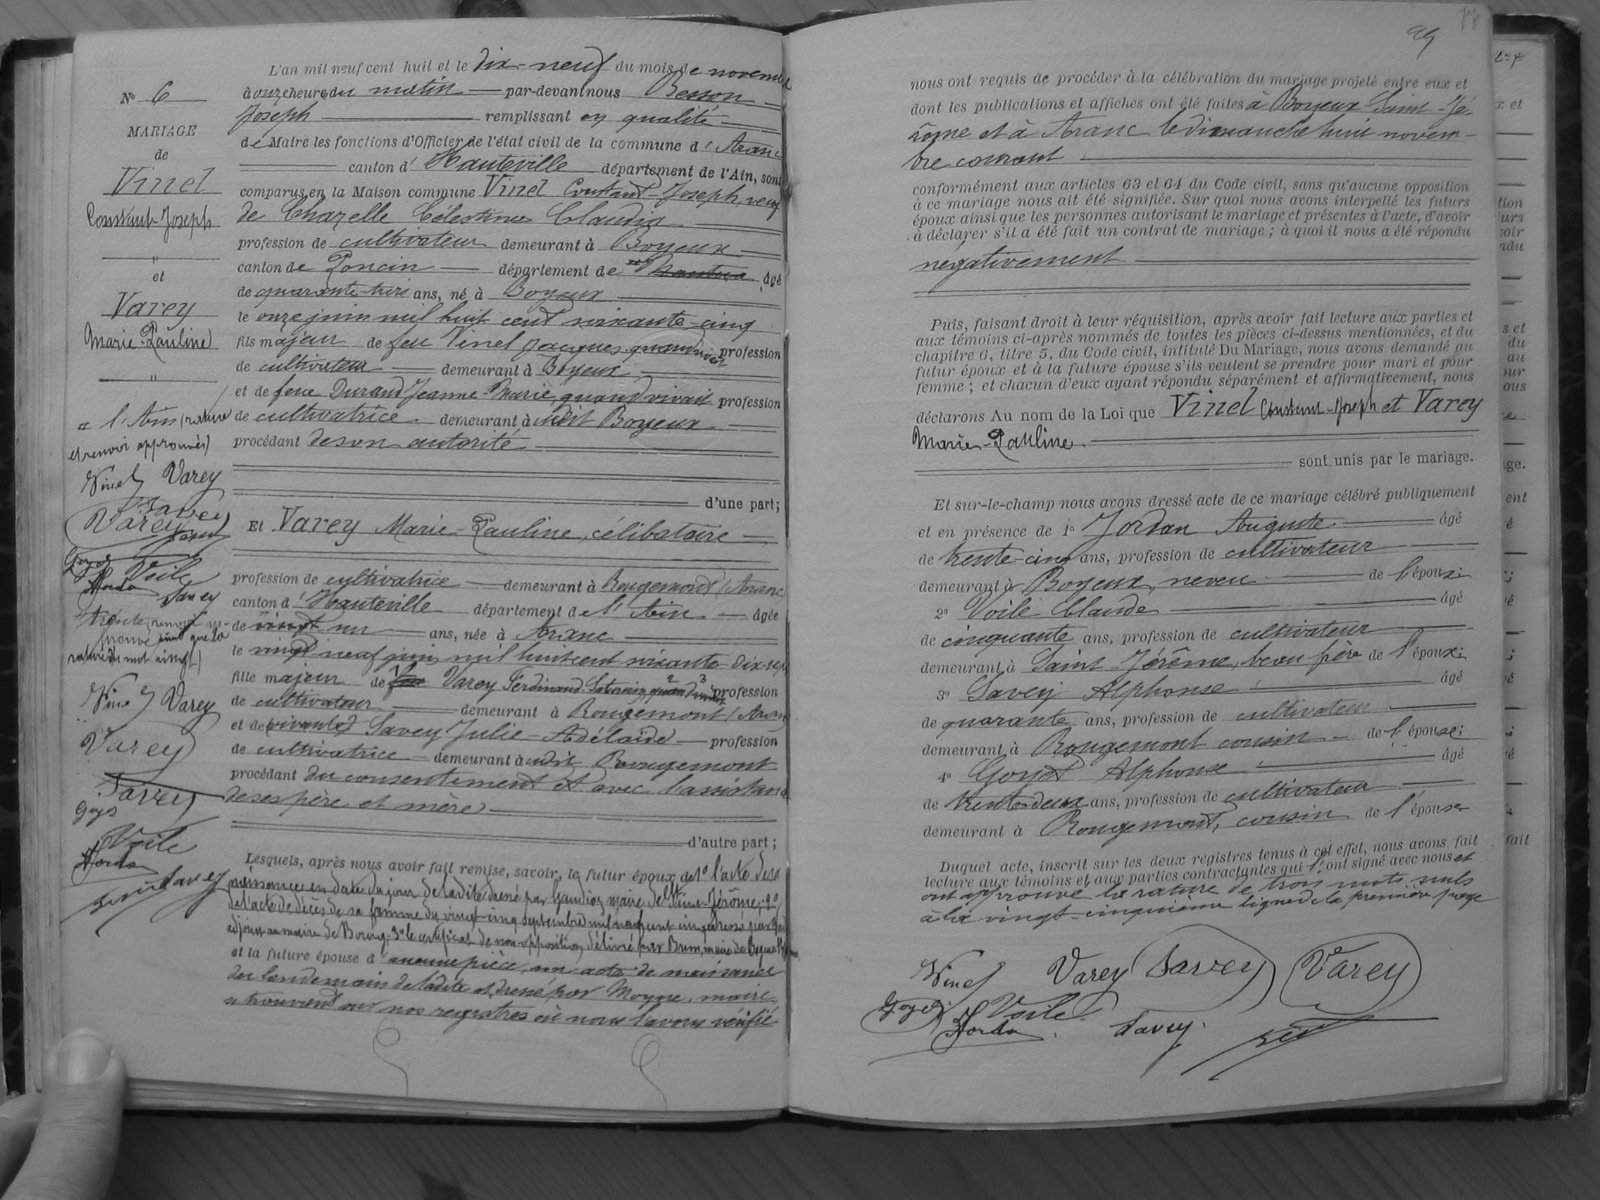 L'an mil neuf cent huit et le dix-neuf du mois de novembre
à onze heures du matin par-devant nous Besson
Joseph remplissant en qualité
de Maire les fonctions d'Officier de l'état civil de la commune d'Aranc
canton d'Hauteville département de l'Ain, sont
comparus en la Maison commune Vinel Constant-Joseph, veuf
de Chazelle Célestine Claudia
profession de cultivateur demeurant à Boyeux
canton de Poncin département de
âgé
de quarante-trois ans, né à Boyeux
le onze juin mil huit cent soixante-cinq
fils majeur de feu Vinel Jacques, quand vivait profession
de cultivateur demeurant à Boyeux
et de feue Durand Jeanne-Marie, quand vivait profession
de cultivatrice demeurant à Boyeux
procédant de son autorité
d'une part;
Et Varey Marie-Pauline, célibataire
profession de cultivatrice demeurant à Rougemont (Aranc
canton d'Hauteville département de l'Ain âgée
de vingt un ans, née à Aranc
le vingt neuf juin mil huit cent soixante-dix-sept
fille majeur de Varey Ferdinand profession
de cultivateur demeurant à Rougemont (Aranc
et de vivante Savey Julie-Adélaïde profession
de cultivatrice demeurant à Rougemont
procédant du consentement et avec l'assistance
de ses père et mère
d'autre part;
Lesquels, après nous avoir fait remise, savoir, le futur époux de 1º l'acte de sa
naissance en date du jour de ladite, dressé par Gaudioz, maire de Saint-Jérôme; 2º
de l'acte de décès de sa femme du vingt-cinq septembre mil neuf cent cinq, dressé par
adjoint au maire de Bourg; 3º le certificat de non-opposition délivré par Brun, maire de Boyeux
et la future épouse d'aucune pièce, son acte de naissance
du lendemain de ladite et dressé par Moyne, maire
se trouvant sur nos registres où nous l'avons vérifié
Nº 6
MARIAGE
de
Vinel
Constant-Joseph
"
et
Varey
Marie-Pauline
"
l'Ain (rature
et renvoi approuvés)
Vinel Varey
Savey
Varey
Goyet Voile
Jordan Savey
trente, renvoi
approuvé ainsi que la
rature du mot vingt)
Vinel Varey
Varey
Savey
Goyet
Voile
Jordan
Savey
99
nous ont requis de procéder à la célébration du mariage projeté entre eux et
dont les publications et affiches ont été faites à Boyeux-Saint-Jé-
rôme et à Aranc le dimanche huit novem-
bre courant
conformément aux articles 63 et 64 du Code civil, sans qu'aucune opposition
à ce mariage nous ait été signifiée. Sur quoi nous avons interpellé les futurs
époux ainsi que les personnes autorisant le mariage et présentes à l'acte, d'avoir
à déclarer s'il a été fait un contrat de mariage; à quoi il nous a été répondu
négativement
Puis, faisant droit à leur réquisition, après avoir fait lecture aux parties et
aux témoins ci-après nommés de toutes les pièces ci-dessus mentionnées, et du
chapitre 6, titre 5, du Code civil, intitulé Du Mariage, nous avons demandé au
futur époux et à la future épouse s'ils veulent se prendre pour mari et pour
femme; et chacun d'eux ayant répondu séparément et affirmativement, nous
déclarons Au nom de la Loi que Vinel Constant-Joseph et Varey
Marie-Pauline
sont unis par le mariage.
Et sur-le-champ nous avons dressé acte de ce mariage célébré publiquement
et en présence de 1º Jordan Auguste âgé
de trente-cinq ans, profession de cultivateur
demeurant à Boyeux, neveu de l'époux;
2º Voile Claude âgé
de cinquante ans, profession de cultivateur
demeurant à Saint-Jérôme, beau frère de l'époux;
3º Savey Alphonse âgé
de quarante ans, profession de cultivateur
demeurant à Rougemont cousin de l'épouse;
4º Goyet Alphonse âgé
de trente-deux ans, profession de cultivateur
demeurant à Rougemont, cousin de l'épouse
Duquel acte, inscrit sur les deux registres tenus à cet effet, nous avons fait
lecture aux témoins et aux parties contractantes qui l'ont signé avec nous et
ont approuvé la rature de trois mots nuls
à la vingt-cinquième ligne de la première page
Vinel Varey Savey Varey
Goyet Voile
Jordan Savey